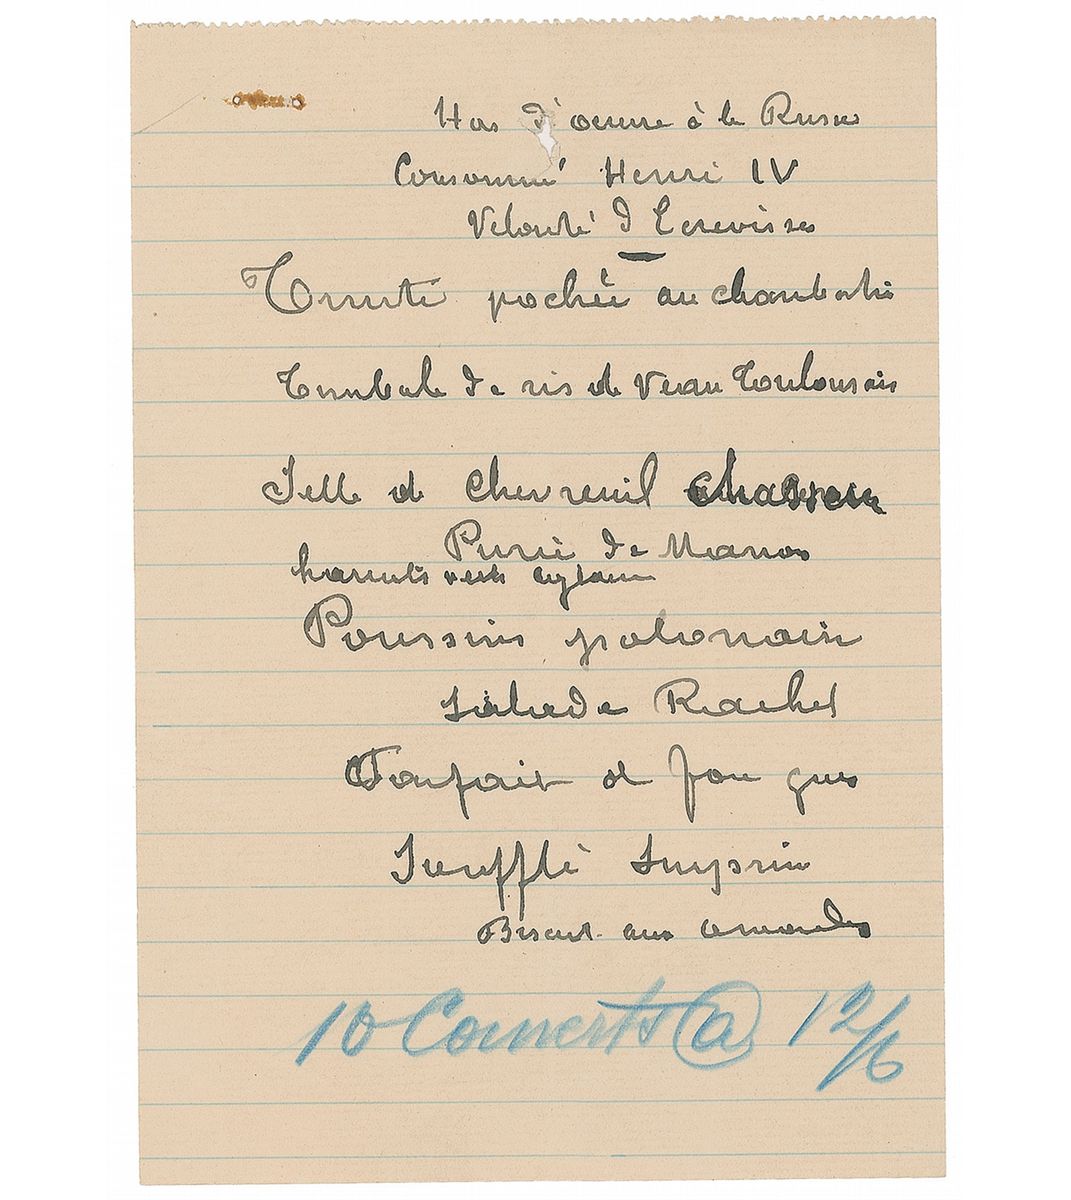 Hors d'œuvre à la Russe
Consommé Henri IV
Velouté d'Ecrevisses
Truite pochée au chambertin
Timbale de ris de Veau Toulousain
Selle de Chevreuil chasseur
Purée de Marrons
haricots verts
Poussins polonais
Salade Rachel
Parfait de foie gras
Soufflé Surprise
Biscuit aux amandes
10 Couverts @ 12/6